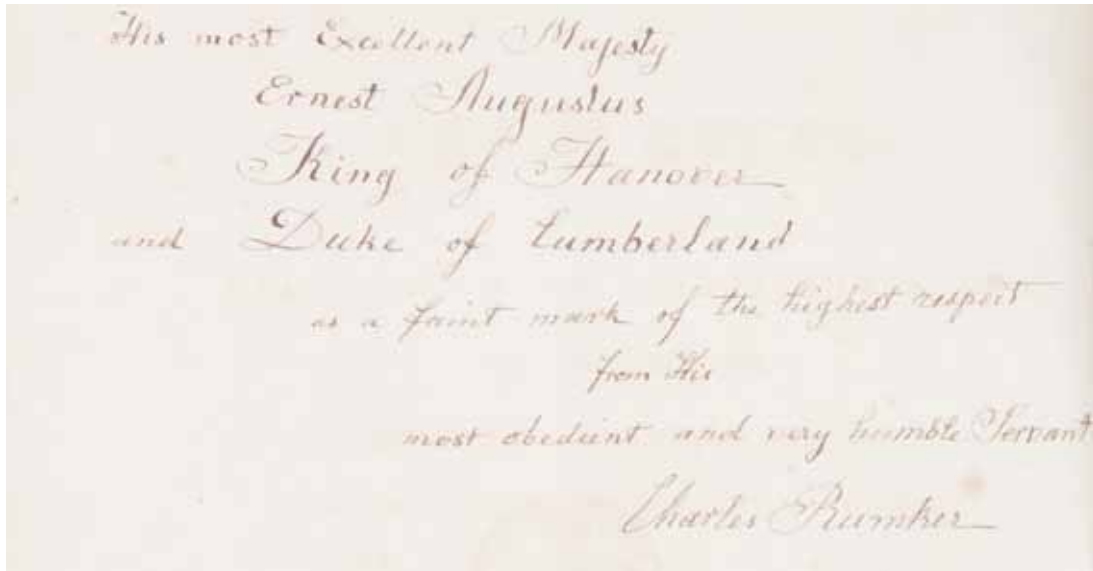 His most Excellent Majesty
Ernest Augustus
King of Hanover
and Duke of Cumberland
as a faint mark of the highest respect
from His
most obedient and very humble Servant
Charles Rumker